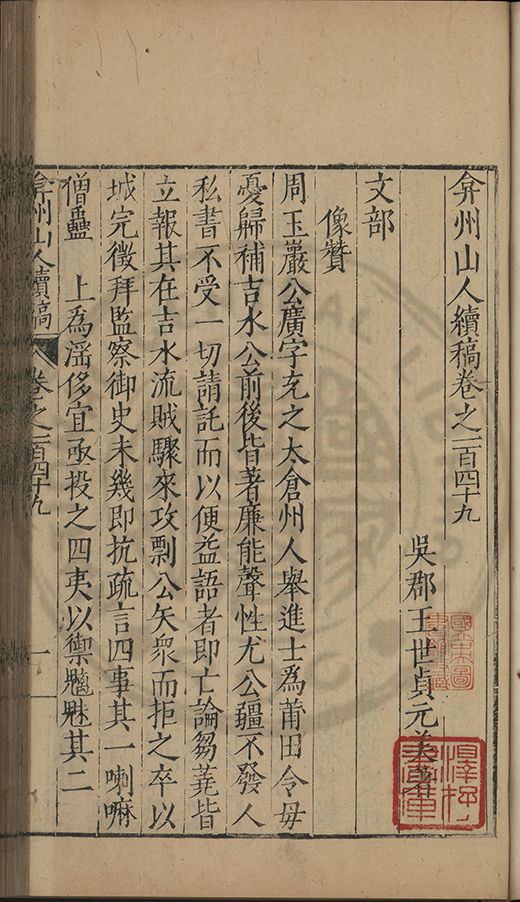 弇州山人續稿卷之一百四十九
吳郡王世貞元美著
文部
像贊
周玉巖公廣字充之太倉州人舉進士爲莆田令毋
憂歸補吉水公前後皆著廉能聲性尤公疆不發人
私書不受一切請託而以便益語者即亡論芻蕘皆
立報其在吉水流賊驟來攻剽公矢衆而拒之卒以
城完徵拜監察御史未幾即抗疏言四事其一喇嘛
僧蠱 上爲滛侈宜亟投之四夷以禦魑魅其二
弇州山人續稿 卷之一百四十九 一